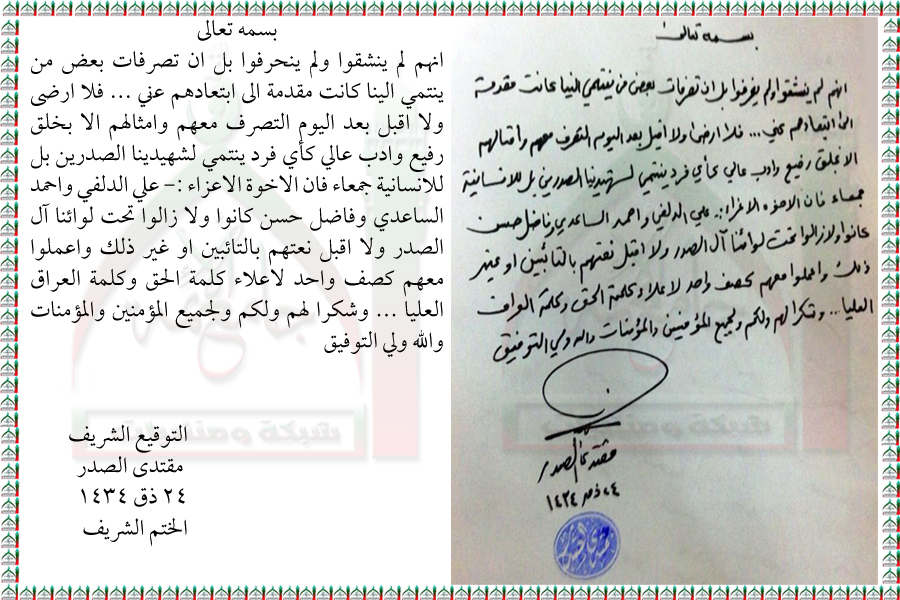 بسمه تعالى
انهم لم ينشقوا ولم ينحرفوا بل ان تصرفات بعض من
ينتمي الينا كانت مقدمة الى ابتعادهم عني ... فلا ارضى
ولا اقبل بعد اليوم التصرف معهم وامثالهم الا بخلق
رفيع وادب عالي كأي فرد ينتمي لشهيدينا الصدرين بل
للانسانية جمعاء فان الاخوة الاعزاء :- علي الدلفي واحمد
الساعدي وفاضل حسن كانوا ولا زالوا تحت لوائنا آل
الصدر ولا اقبل نعتهم بالتائبين او غير ذلك واعملوا
معهم كصف واحد لاعلاء كلمة الحق وكلمة العراق
العليا ... وشكرا لهم ولكم ولجميع المؤمنين والمؤمنات
والله ولي التوفيق
التوقيع الشريف
مقتدى الصدر
٢٤ ذق ١٤٣٤
الختم الشريف
بسمه تعالى
انهم لم ينشقوا ولم ينحرفوا بل ان تصرفات بعض من ينتمي الينا كانت مقدمة
الى ابتعادهم عني ... فلا ارضى ولا اقبل بعد اليوم التصرف معهم وامثالهم
الا بخلق رفيع وادب عالي كأي فرد ينتمي لشهيدينا الصدرين بل للانسانية
جمعاء فان الاخوة الاعزاء :- علي الدلفي واحمد الساعدي وفاضل حسن
كانوا ولا زالوا تحت لوائنا آل الصدر ولا اقبل نعتهم بالتائبين او غير
ذلك واعملوا معهم كصف واحد لاعلاء كلمة الحق وكلمة العراق
العليا ... وشكرا لهم ولكم ولجميع المؤمنين والمؤمنات والله ولي التوفيق
مقتدى الصدر
٢٤ ذق ١٤٣٤
شبكة